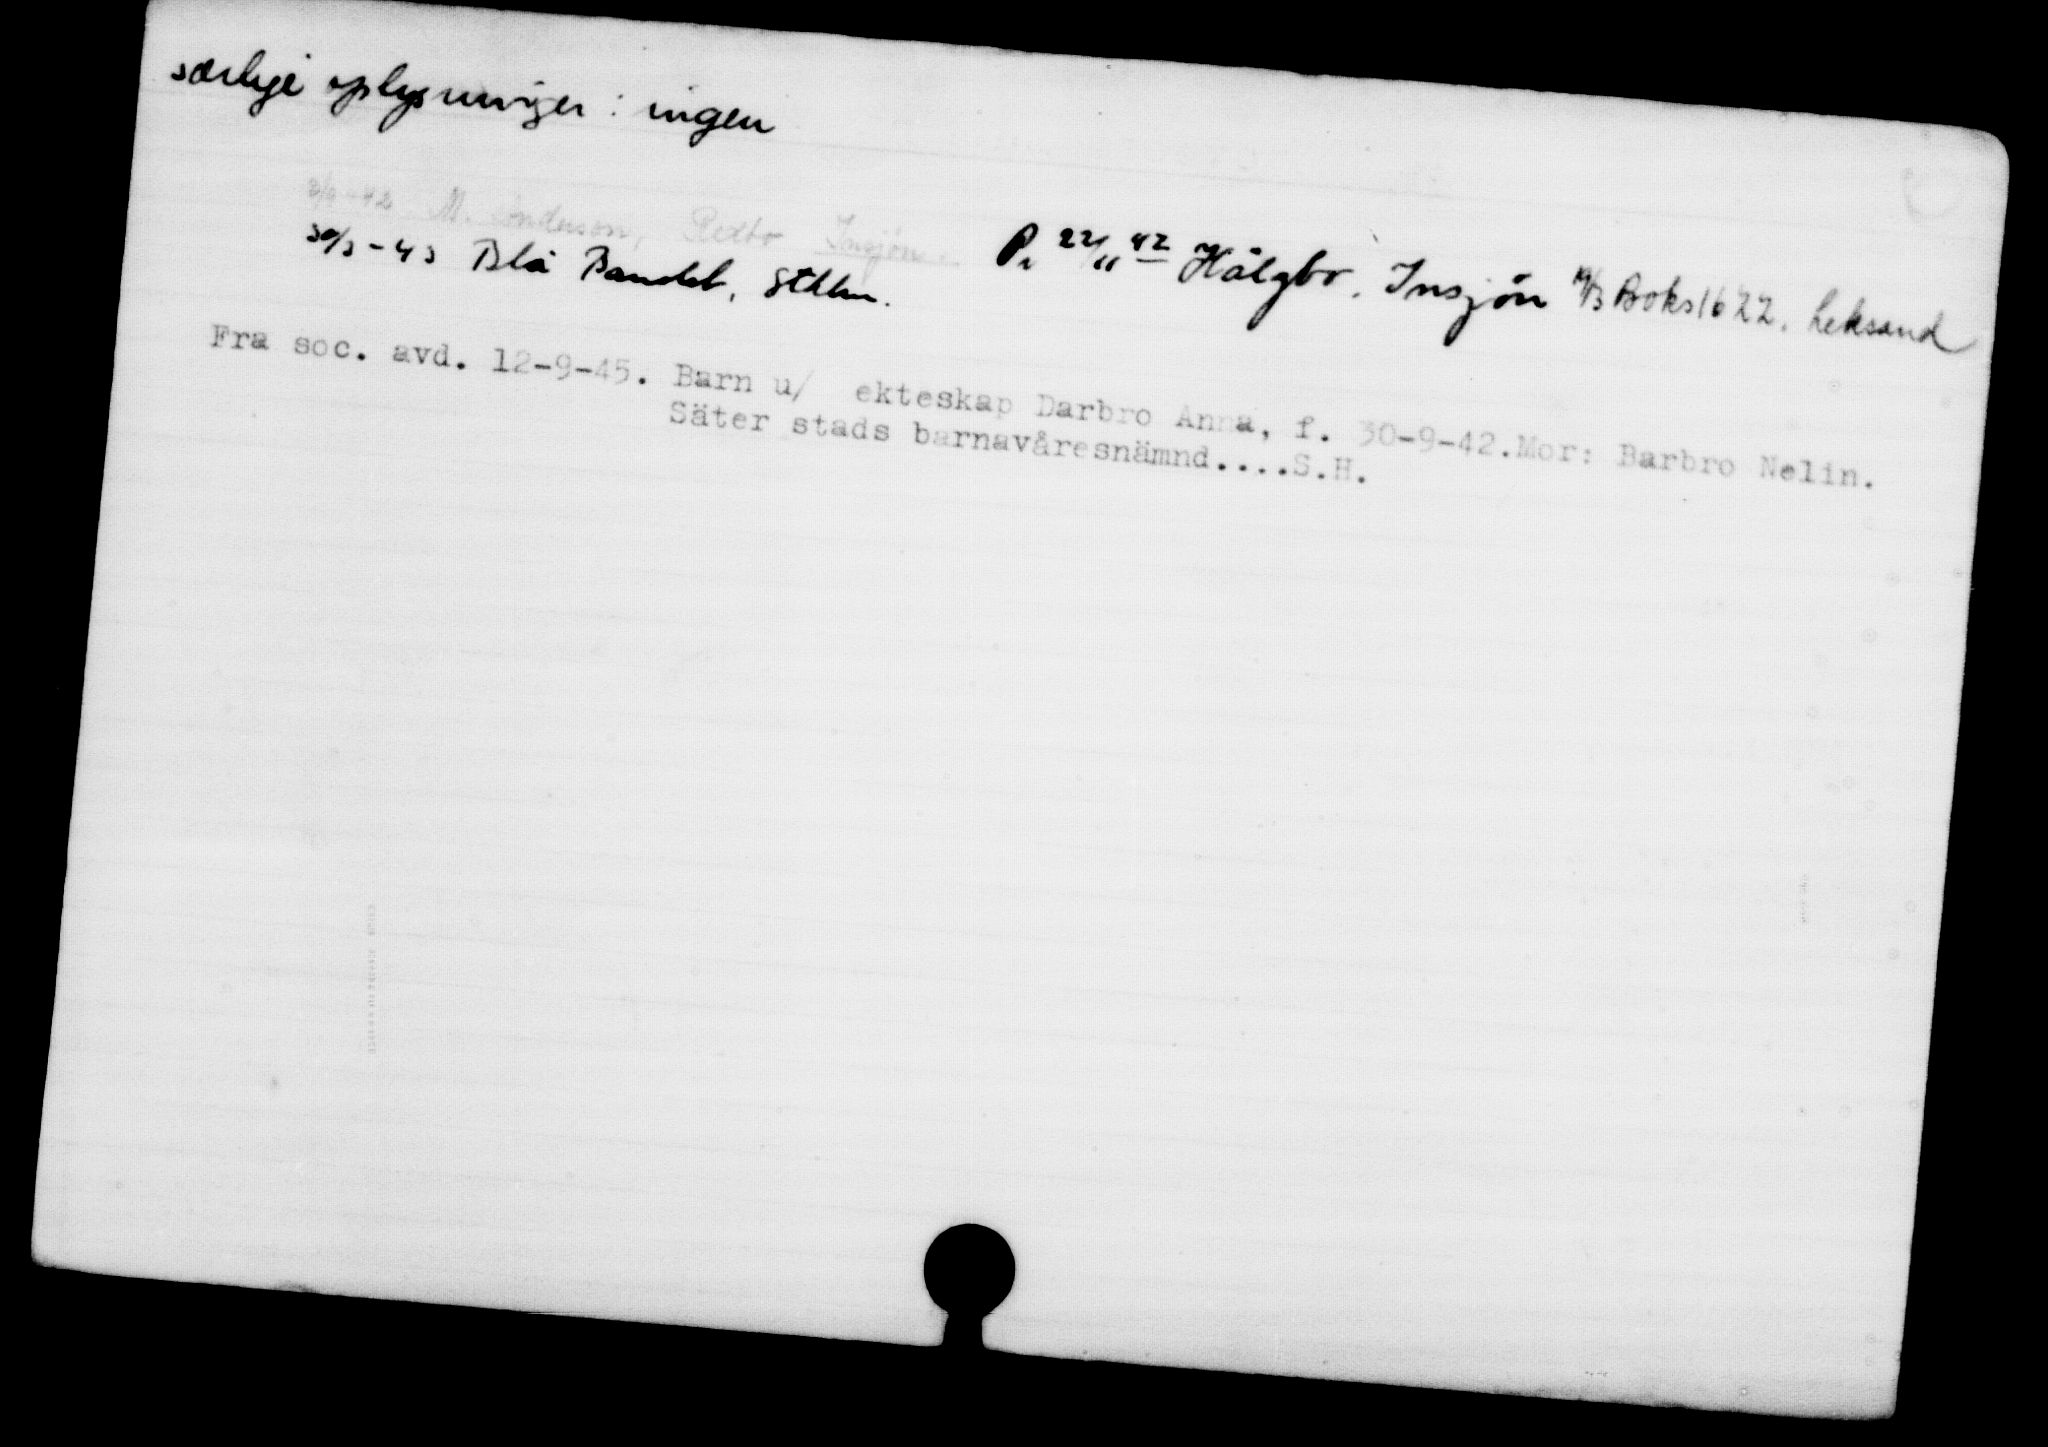 særlige oplysninger : ingen
3/9-42 M. Anderson, Redbo Insjön.
30/3-43 Blå Bandet, Sthlm.
P. 22/11 42 Hälgbo. Insjön 19/3 Boks 1622. Leksand
Fra soc. avd. 12-9-45. Barn u/ ekteskap Darbro Anna, f. 30-9-42.Mor: Barbro Nelin.
Säter stads barnavåresnämnd....S.H.